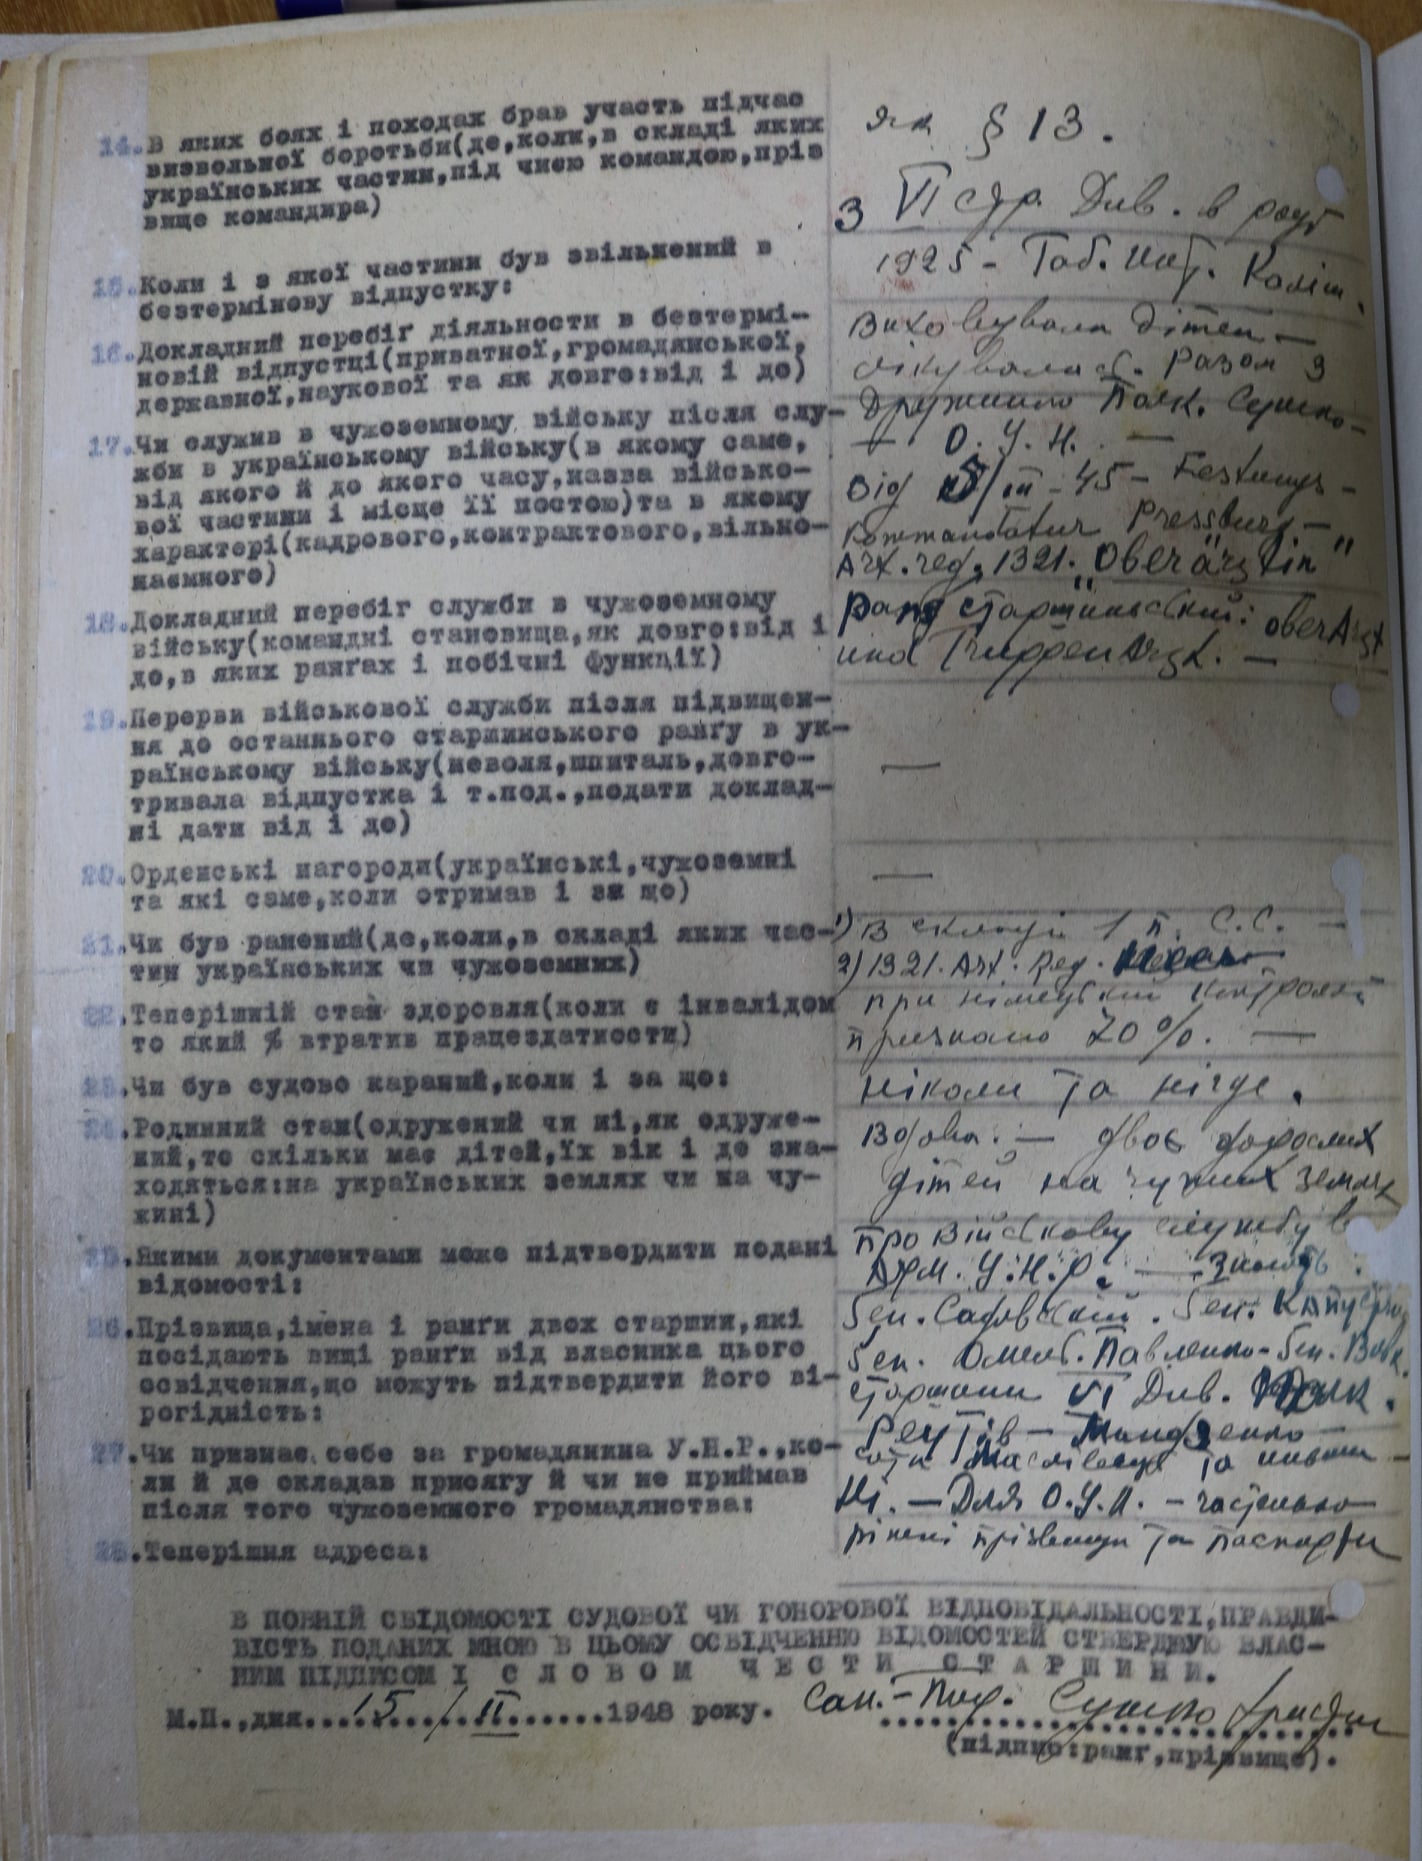 14.В яких боях і походах брав участь підчас
визвольної боротьби(де,коли,в складі яких
українських частин,під чиєю командою,пріз
вище командира)
як § 13.
15.Коли і з якої частини був звільнений в
безтермінову відпустку:
З VI стр. Див. в році
1925 - Таб. Инт. Каліш.
16.Докладний перебіг діяльности в безтермі-
новій відпустці(приватної,громадянської,
державної,наукової та як довго:від і до)
Виховувала дітей —
лікувала с. Разом з
Дружиною Полк. Сушко-
— О. У. Н. —
17.Чи служив в чужоземному війську після слу-
жби в українському війську(в якому саме,
від якого й до якого часу,назва військо-
вої частини і місце її постою)та в якому
характері(кадрового,контрактового,вільно-
наємного)
Від 5/III - 45 - Festungs-
kommandatur Pressburg -
Art. reg. 1321. "Oberärztin"
18.Докладний перебіг служби в чужоземному
війську(командні становища,як довго:від і
до,в яких рангах і побічні функції)
Ранг старшинський: oberArzt
und TruppenArzt. —
19.Перерви військової служби після підвищен-
ня до останнього старшинського рангу в ук-
раїнському війську(неволя,шпиталь,довго-
тривала відпустка і т.под.,подати доклад-
ні дати від і до)
—
20.Орденські нагороди(українські,чужоземні
та які саме,коли отримав і за що)
—
21.Чи був ранений(де,коли,в складі яких час-
тин українських чи чужоземних)
1) В складі 1 п. С.С. —
2) 1321. Art. Reg.
22.Теперішній стан здоровля(коли є інвалідом
то який % втратив працездатности)
при німецькій контролі
признано 70%. —
23.Чи був судово караний,коли і за що:
ніколи та нігде.
24.Родинний стан(одружений чи ні,як одруже-
ний,то скільки має дітей,їх вік і де зна-
ходяться:на українських землях чи на чу-
жині)
Вдова. — двоє дорослих
дітей на чужих землях
25.Якими документами може підтвердити подані
відомості:
про військову службу в
Арм. У.Н.Р. — знають:
26.Прізвища,імена і ранги двох старшин,які
посідають вищі ранги від власника цього
освідчення,що можуть підтвердити його ві-
рогідність:
Ген. Садовський. Ген. Капустян
Ген. Омел. Павленко - Ген. Вовк.
старшини VI Див. Полк.
27.Чи признає себе за громадянина У.Н.Р.,ко-
ли й де складав присягу й чи не приймав
після того чужоземного громадянства:
та инши -
Ні. — Для О.У.Н. -
28.Теперішня адреса:
різні прізвища та паспорти
В ПОВНІЙ СВІДОМОСТІ СУДОВОЇ ЧИ ГОНОРОВОЇ ВІДПОВІДАЛЬНОСТІ,ПРАВДИ-
ВІСТЬ ПОДАНИХ МНОЮ В ЦЬОМУ ОСВІДЧЕННЮ ВІДОМОСТЕЙ СТВЕРДЖУЮ ВЛАС-
НИМ ПІДПИСОМ І С Л О В О М Ч Е С Т И С Т А Р Ш И Н И.
М.П.,дня....15./.II.......1948 року. Сан.-Пор. Сушко
(підпис:ранг,прізвище).